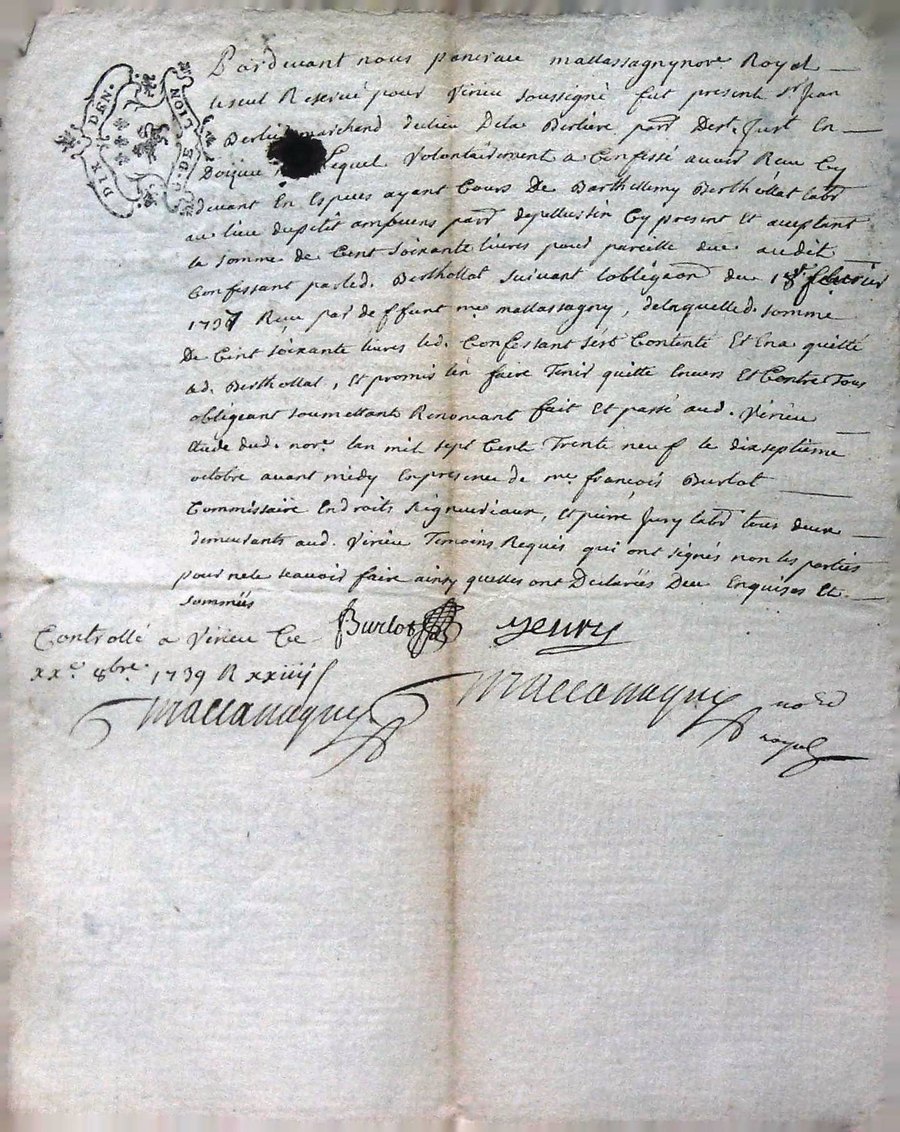 DIX DEN.
G. DE LION
Pardevant nous pancrace mallassagny nore Royal
le seul Reservé pour Virieu soussigné fut present sr Jean
Berlie marchend du lieu De la Berliere parr De st. Just En
Doizieu Lequel Volontairement a Confessé avoir Receu Cy
devant En Especes ayant Cours De Barthellemy Berthollat labr
au lieu du petit ampuens parr de pellussin Cy present Et aceptant
la somme de Cent soixante livres pour pareille due audit
Confessant par led. Berthollat suivant lobligeaon du 18 fevrier
1737 Receu par deffunt me mallassagny, de laquelle d. somme
De Cent soixante livres led. Confessant sest Contenté Et En a quitté
led. Berthollat, Et promis len faire Tenir quitte Envers Et Contre Tous
obligeant soumettant Renoncant fait Et passé aud. Virieu
Etude dud. nore. lan mil sept Cent Trente neuf le dixseptieme
octobre avant midy En presence de me françois Burlat
Commissaire En droits seigneuriaux, Et pierre Jury labr tous deux
demeurants aud. Virieu Temoins Requis qui ont signés non les parties
pour ne le scavoir faire ainsy quelles ont Declarées Deu Enquises Et
sommées
Burlat Jeury
Controllé a Virieu Ce
xxe. 8bre. 1739 R xxiiii s
Mallassagny Mallassagny nore
royal